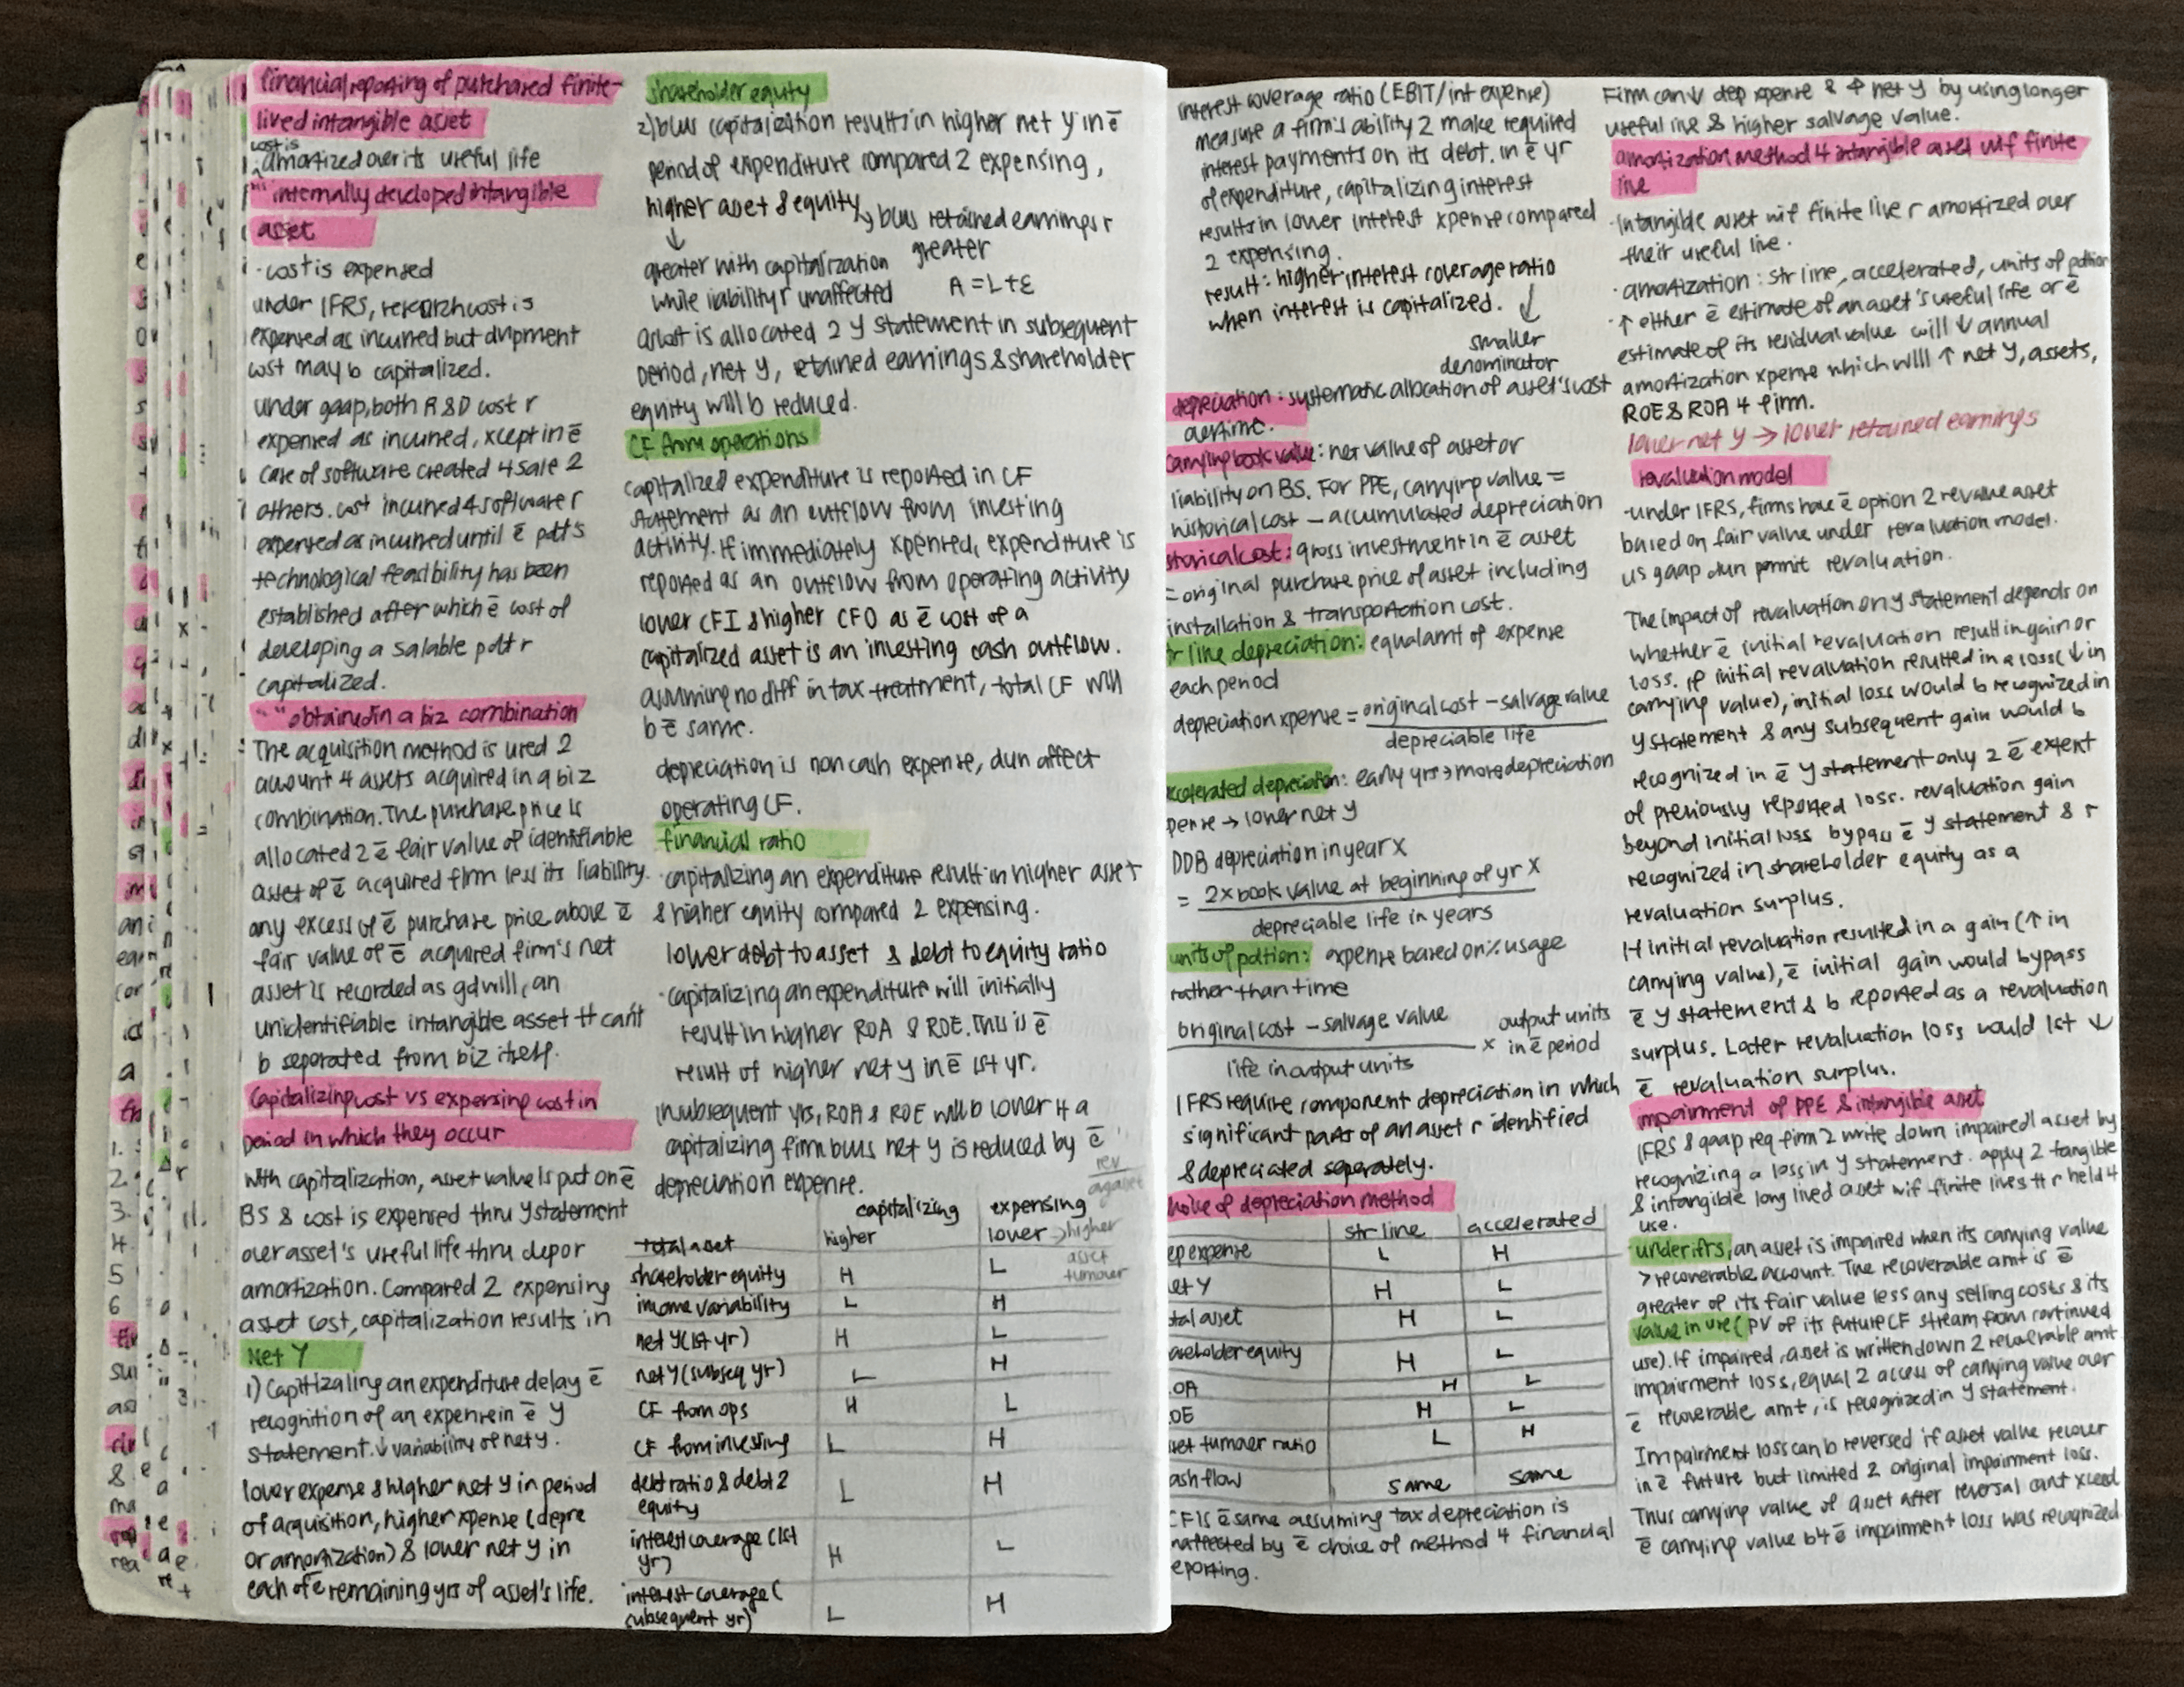 financial reporting of purchased finite-
lived intangible asset
cost is
amortized over its useful life
"" internally developed intangible
asset
· cost is expensed
under IFRS, research cost is
expensed as incurred but dvlpment
cost may b capitalized.
under gaap, both R & D cost r
expensed as incurred, xcept in ē
case of software created 4 sale 2
others. cost incurred 4 software r
expensed as incurred until ē pdt's
technological feasibility has been
established after which ē cost of
developing a salable pdt r
capitalized.
"" obtained in a biz combination
The acquisition method is used 2
account 4 assets acquired in a biz
combination. The purchase price is
allocated 2 ē fair value of identifiable
asset of ē acquired firm less its liability.
any excess of ē purchase price above ē
fair value of ē acquired firm's net
asset is recorded as gdwill, an
unidentifiable intangible asset tt can't
b separated from biz itself.
Capitalizing cost vs expensing cost in
period in which they occur
With capitalization, asset value is put on ē
BS & cost is expensed thru Y statement
over asset's useful life thru dep or
amortization. Compared 2 expensing
asset cost, capitalization results in
Net Y
1) Capitizaling an expenditure delay ē
recognition of an expense in ē Y
statement. ↓ variability of net y.
lower expense & higher net Y in period
of acquisition, higher xpense (depre
or amortization) & lower net y in
each of ē remaining yrs of asset's life.
shareholder equity
2) bcus capitalization results in higher net Y in ē
period of expenditure compared 2 expensing,
higher asset & equity → bcus retained earnings r
↓ greater
greater with capitalization
while liability r unaffected A = L + E
as cost is allocated 2 Y statement in subsequent
period, net Y, retained earnings & shareholder
equity will b reduced.
CF from operations
capitalized expenditure is reported in CF
statement as an outflow from investing
activity. If immediately xpensed, expenditure is
reported as an outflow from operating activity
lower CFI & higher CFO as ē cost of a
capitalized asset is an investing cash outflow.
assuming no diff in tax treatment, total CF will
b ē same.
depreciation is non cash expense, dun affect
operating CF.
financial ratio
· capitalizing an expenditure result in higher asset
& higher equity compared 2 expensing.
lower debt to asset & debt to equity ratio
· capitalizing an expenditure will initially
result in higher ROA & ROE. This is ē
result of higher net y in ē 1st yr.
in subsequent yrs, ROA & ROE will b lower 4 a
capitalizing firm bcus net y is reduced by ē
depreciation expense.
rev
capitalizing expensing
total asset higher lower → higher
asset
turnover
shareholder equity H L
income variability L H
net Y (1st yr) H L
net Y (subseq yr) L H
CF from ops H L
CF from investing L H
debt ratio & debt 2
equity L H
interest coverage (1st
yr) H L
interest coverage (
subsequent yr) L H
interest coverage ratio (EBIT/int expense)
measure a firm's ability 2 make required
interest payments on its debt. in ē yr
of expenditure, capitalizing interest
results in lower interest xpense compared
2 expensing.
result: higher interest coverage ratio
when interest is capitalized. ↓
smaller
denominator
depreciation: systematic allocation of asset's cost
overtime.
carrying book value: net value of asset or
liability on BS. For PPE, carrying value =
historical cost – accumulated depreciation
storical cost: gross investment in ē asset
= original purchase price of asset including
installation & transportation cost.
r line depreciation: equal amt of expense
each period
depreciation xpense = original cost – salvage value
depreciable life
ccelerated depreciation: early yrs → more depreciation
pense → lower net y
DDB depreciation in year X
= 2 x book value at beginning of yr X
depreciable life in years
units of pdtion: expense based on % usage
rather than time
original cost – salvage value x output units
in ē period
life in output units
IFRS require component depreciation in which
significant parts of an asset r identified
& depreciated separately.
hoice of depreciation method
str line accelerated
ep expense L H
et Y H L
tal asset H L
areholder equity H L
OA H L
OE H L
set turnover ratio L H
ash flow same same
CF is ē same assuming tax depreciation is
naffected by ē choice of method 4 financial
eporting.
Firm can ↓ dep xpense & ↑ net y by using longer
useful live & higher salvage value.
amortization method 4 intangible asset wif finite
live
· Intangible asset wif finite live r amortized over
their useful live.
· amortization: str line, accelerated, units of pdtion
· ↑ either ē estimate of an asset's useful life or ē
estimate of its residual value will ↓ annual
amortization xpense which will ↑ net y, assets,
ROE & ROA 4 firm.
lower net y → lower retained earnings
revaluation model
· under IFRS, firms have ē option 2 revalue asset
based on fair value under revaluation model.
us gaap dun permit revaluation.
The impact of revaluation on y statement depends on
whether ē initial revaluation result in gain or
loss. If initial revaluation resulted in a loss (↓ in
carrying value), initial loss would b recognized in
y statement & any subsequent gain would b
recognized in ē y statement only 2 ē extent
of previously reported loss. revaluation gain
beyond initial loss bypass ē y statement & r
recognized in shareholder equity as a
revaluation surplus.
If initial revaluation resulted in a gain (↑ in
carrying value), ē initial gain would bypass
ē y statement & b reported as a revaluation
surplus. Later revaluation loss would 1st ↓
ē revaluation surplus.
impairment of PPE & intangible asset
IFRS & gaap req firm 2 write down impaired asset by
recognizing a loss in y statement. apply 2 tangible
& intangible long lived asset wif finite lives tt r held 4
use.
under ifrs, an asset is impaired when its carrying value
> recoverable account. The recoverable amt is ē
greater of its fair value less any selling costs & its
value in use (PV of its future CF stream from continued
use). If impaired, asset is written down 2 recoverable amt
impairment loss, equal 2 access of carrying value over
ē recoverable amt, is recognized in y statement.
Impairment loss can b reversed if asset value recover
in ē future but limited 2 original impairment loss.
Thus carrying value of asset after reversal cant xceed
ē carrying value b4 ē impairment loss was recognized